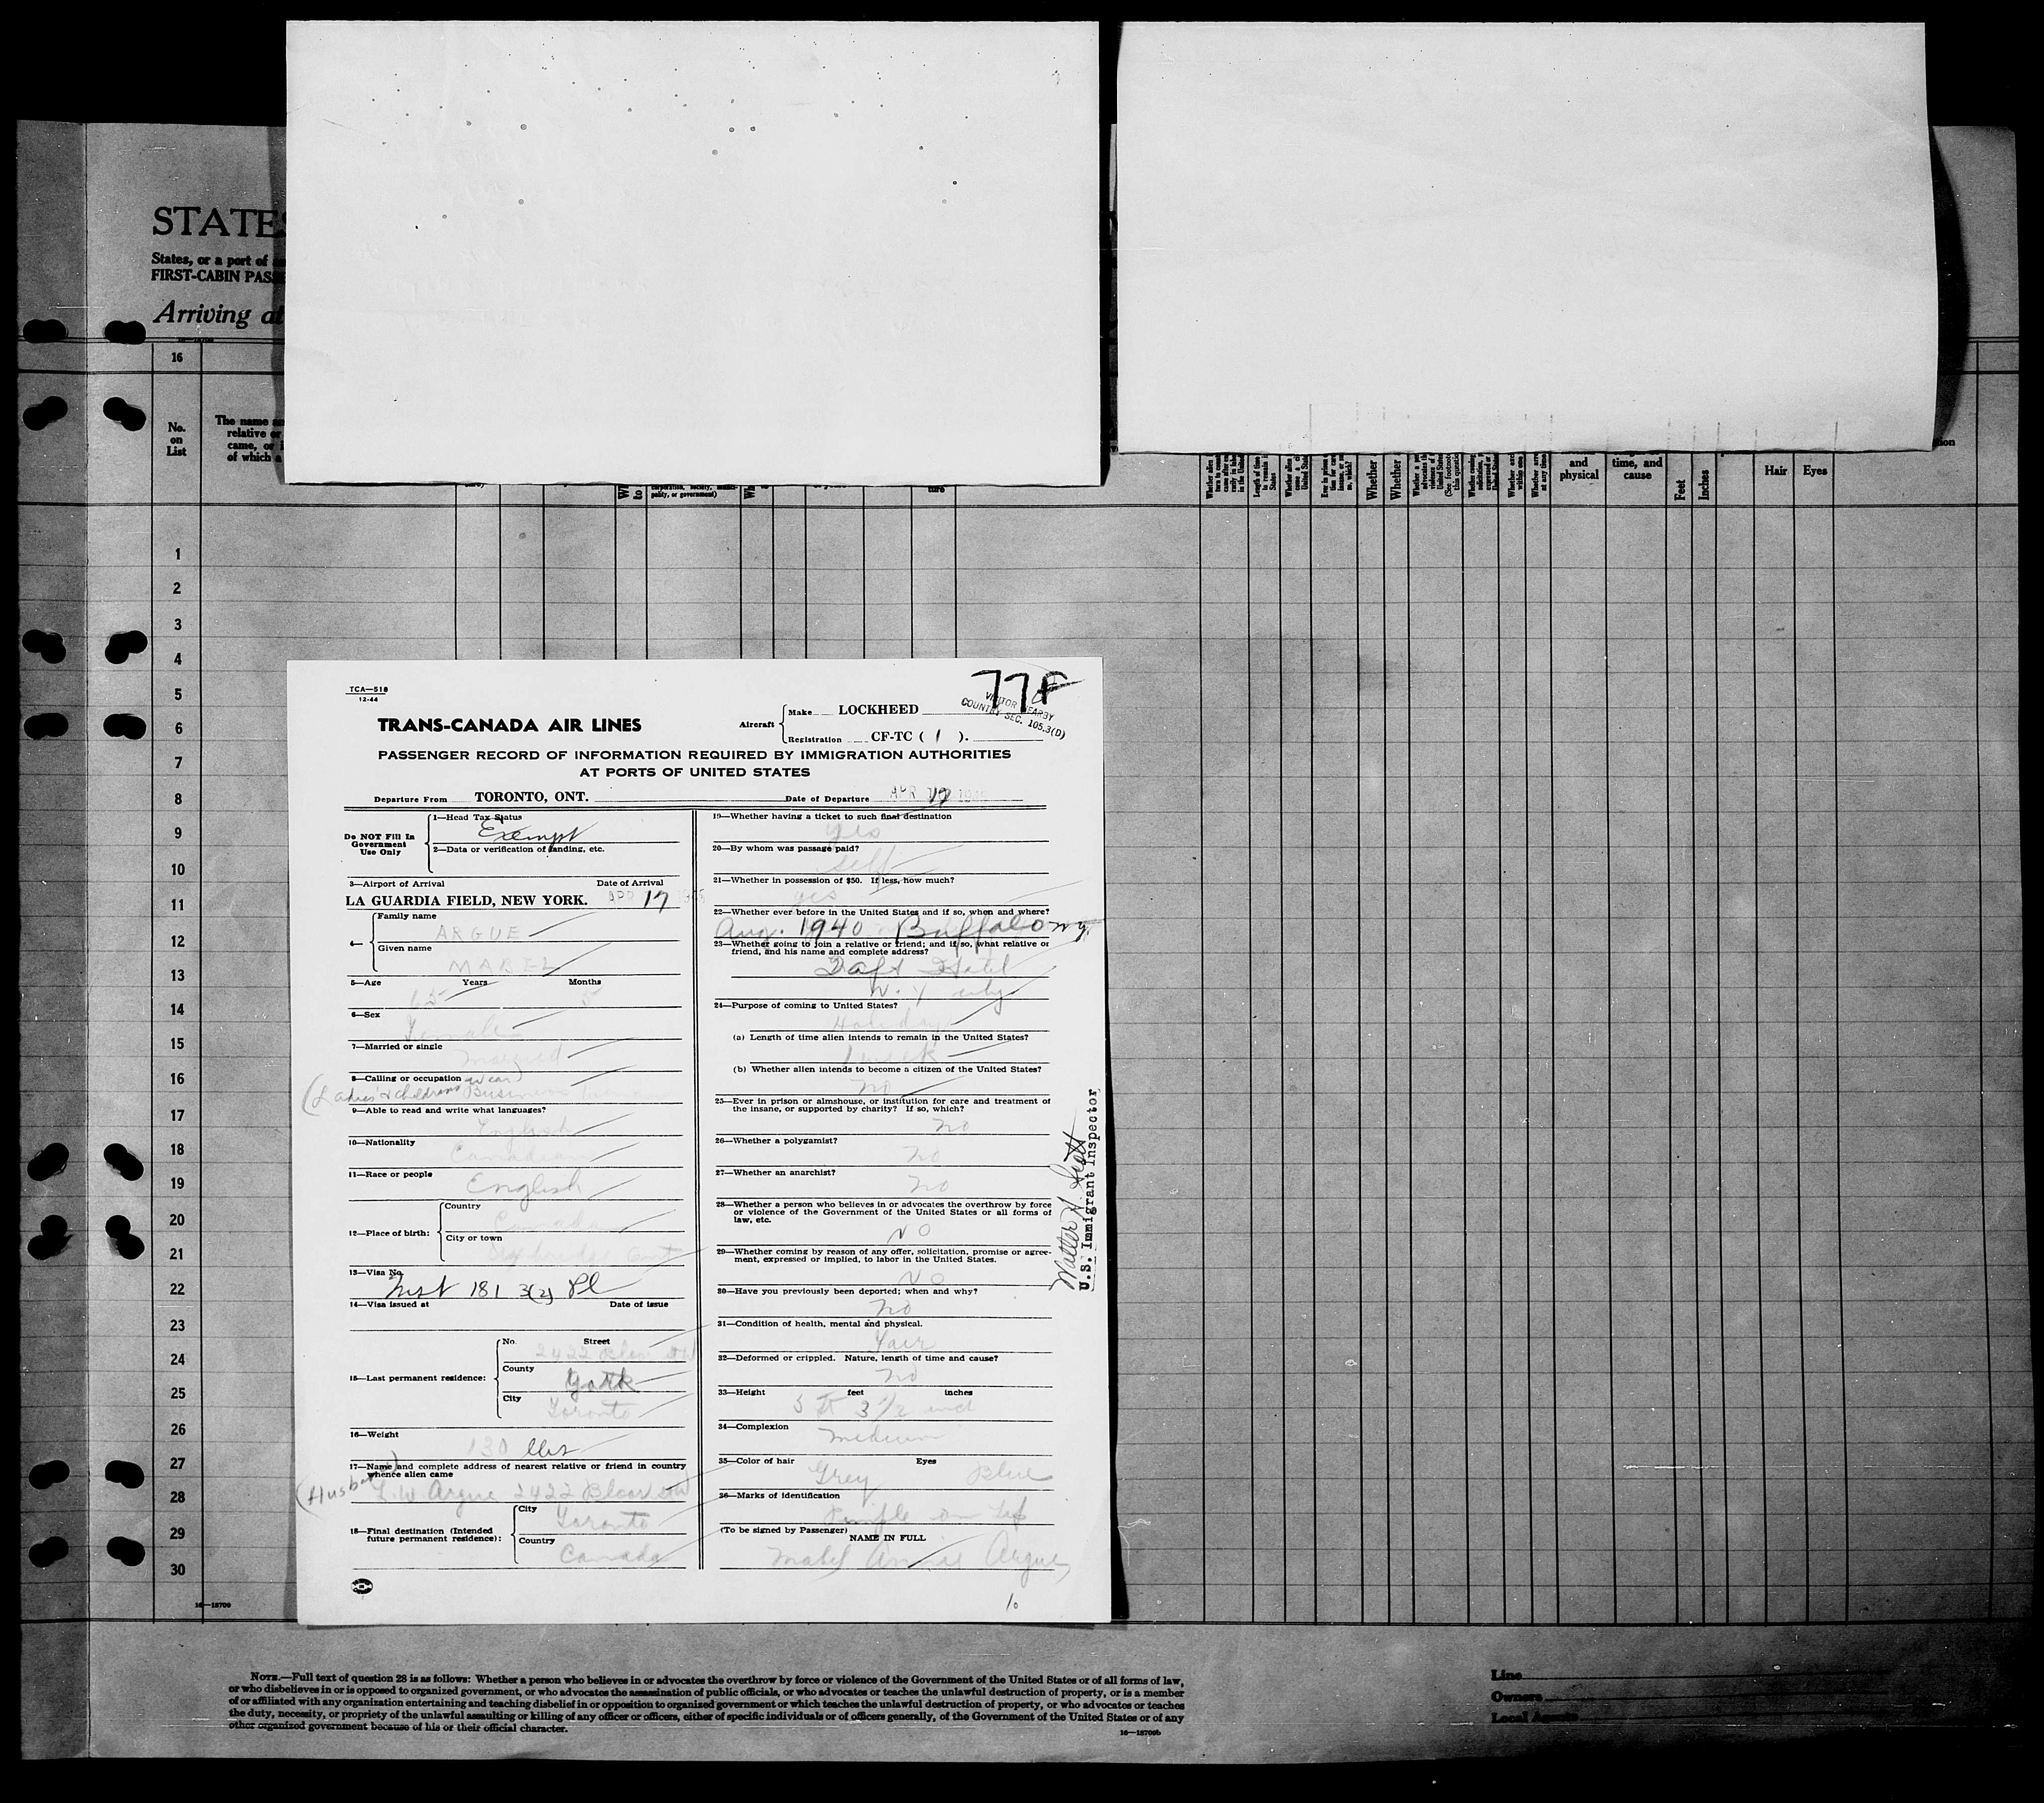 STATES
States, or a port of
FIRST-CABIN PASS
Arriving at
16
No. on List
The name
relative or
came, or
of which a
corporation, society, munici-
pality, or government)
ture
Whether
Whether
and physical
time, and cause
Feet
Inches
Hair
Eyes
1
2
3
4
5
6
7
8
9
10
11
12
13
14
15
16
17
18
19
20
21
22
23
24
25
26
27
28
29
30
TCA—518
12-44
77F
VISITOR NEARBY
COUNTRY SEC. 105.3(D)
TRANS-CANADA AIR LINES
Aircraft
Make LOCKHEED
Registration CF-TC ( 1 ).
PASSENGER RECORD OF INFORMATION REQUIRED BY IMMIGRATION AUTHORITIES
AT PORTS OF UNITED STATES
Departure From TORONTO, ONT. Date of Departure APR 17
Do NOT Fill In Government Use Only
1—Head Tax Status
Exempt
2—Data or verification of landing, etc.
3—Airport of Arrival Date of Arrival
LA GUARDIA FIELD, NEW YORK. APR 17
4— Family name
ARGUE
Given name
MABEL
5—Age Years Months
65 5
6—Sex
Female
7—Married or single
Married
8—Calling or occupation wear)
(Ladies & childrens
9—Able to read and write what languages?
English
10—Nationality
Canadian
11—Race or people
English
12—Place of birth:
Country
Canada
City or town
Ont
13—Visa No.
Inst 181 3(2) Pl
14—Visa issued at Date of issue
15—Last permanent residence:
No. Street
2422 Bloor St W
County
York
City
Toronto
16—Weight
130 lbs
17—Name and complete address of nearest relative or friend in country
whence alien came
(Husband) L. W. Argue 2422 Bloor St W
18—Final destination (Intended
future permanent residence):
City
Toronto
Country
Canada
19—Whether having a ticket to such final destination
Yes
20—By whom was passage paid?
Self
21—Whether in possession of $50. If less, how much?
yes
22—Whether ever before in the United States and if so, when and where?
Aug. 1940 Buffalo N.Y.
23—Whether going to join a relative or friend; and if so, what relative or
friend, and his name and complete address?
Taft Hotel
N. Y city
24—Purpose of coming to United States?
Holiday
(a) Length of time alien intends to remain in the United States?
1 week
(b) Whether alien intends to become a citizen of the United States?
No
25—Ever in prison or almshouse, or institution for care and treatment of
the insane, or supported by charity? If so, which?
No
26—Whether a polygamist?
No
27—Whether an anarchist?
No
28—Whether a person who believes in or advocates the overthrow by force
or violence of the Government of the United States or all forms of
law, etc.
NO
29—Whether coming by reason of any offer, solicitation, promise or agree-
ment, expressed or implied, to labor in the United States.
NO
30—Have you previously been deported; when and why?
No
31—Condition of health, mental and physical.
Fair
32—Deformed or crippled. Nature, length of time and cause?
No
33—Height feet inches
5 ft 3 1/2 inch
34—Complexion
Medium
35—Color of hair Eyes
Grey Blue
36—Marks of identification
Dimple on
(To be signed by Passenger)
NAME IN FULL
Mabel Annie Argue
10
Walter N. Scott
U.S. Immigrant Inspector
16—18709
NOTE.—Full text of question 28 is as follows: Whether a person who believes in or advocates the overthrow by force or violence of the Government of the United States or of all forms of law,
or who disbelieves in or is opposed to organized government, or who advocates the assassination of public officials, or who advocates or teaches the unlawful destruction of property, or is a member
of or affiliated with any organization entertaining and teaching disbelief in or opposition to organized government or which teaches the unlawful destruction of property, or who advocates or teaches
the duty, necessity, or propriety of the unlawful assaulting or killing of any officer or officers, either of specific individuals or of officers generally, of the Government of the United States or of any
other organized government because of his or their official character.
16—18709b
Line
Owners
Local Agents